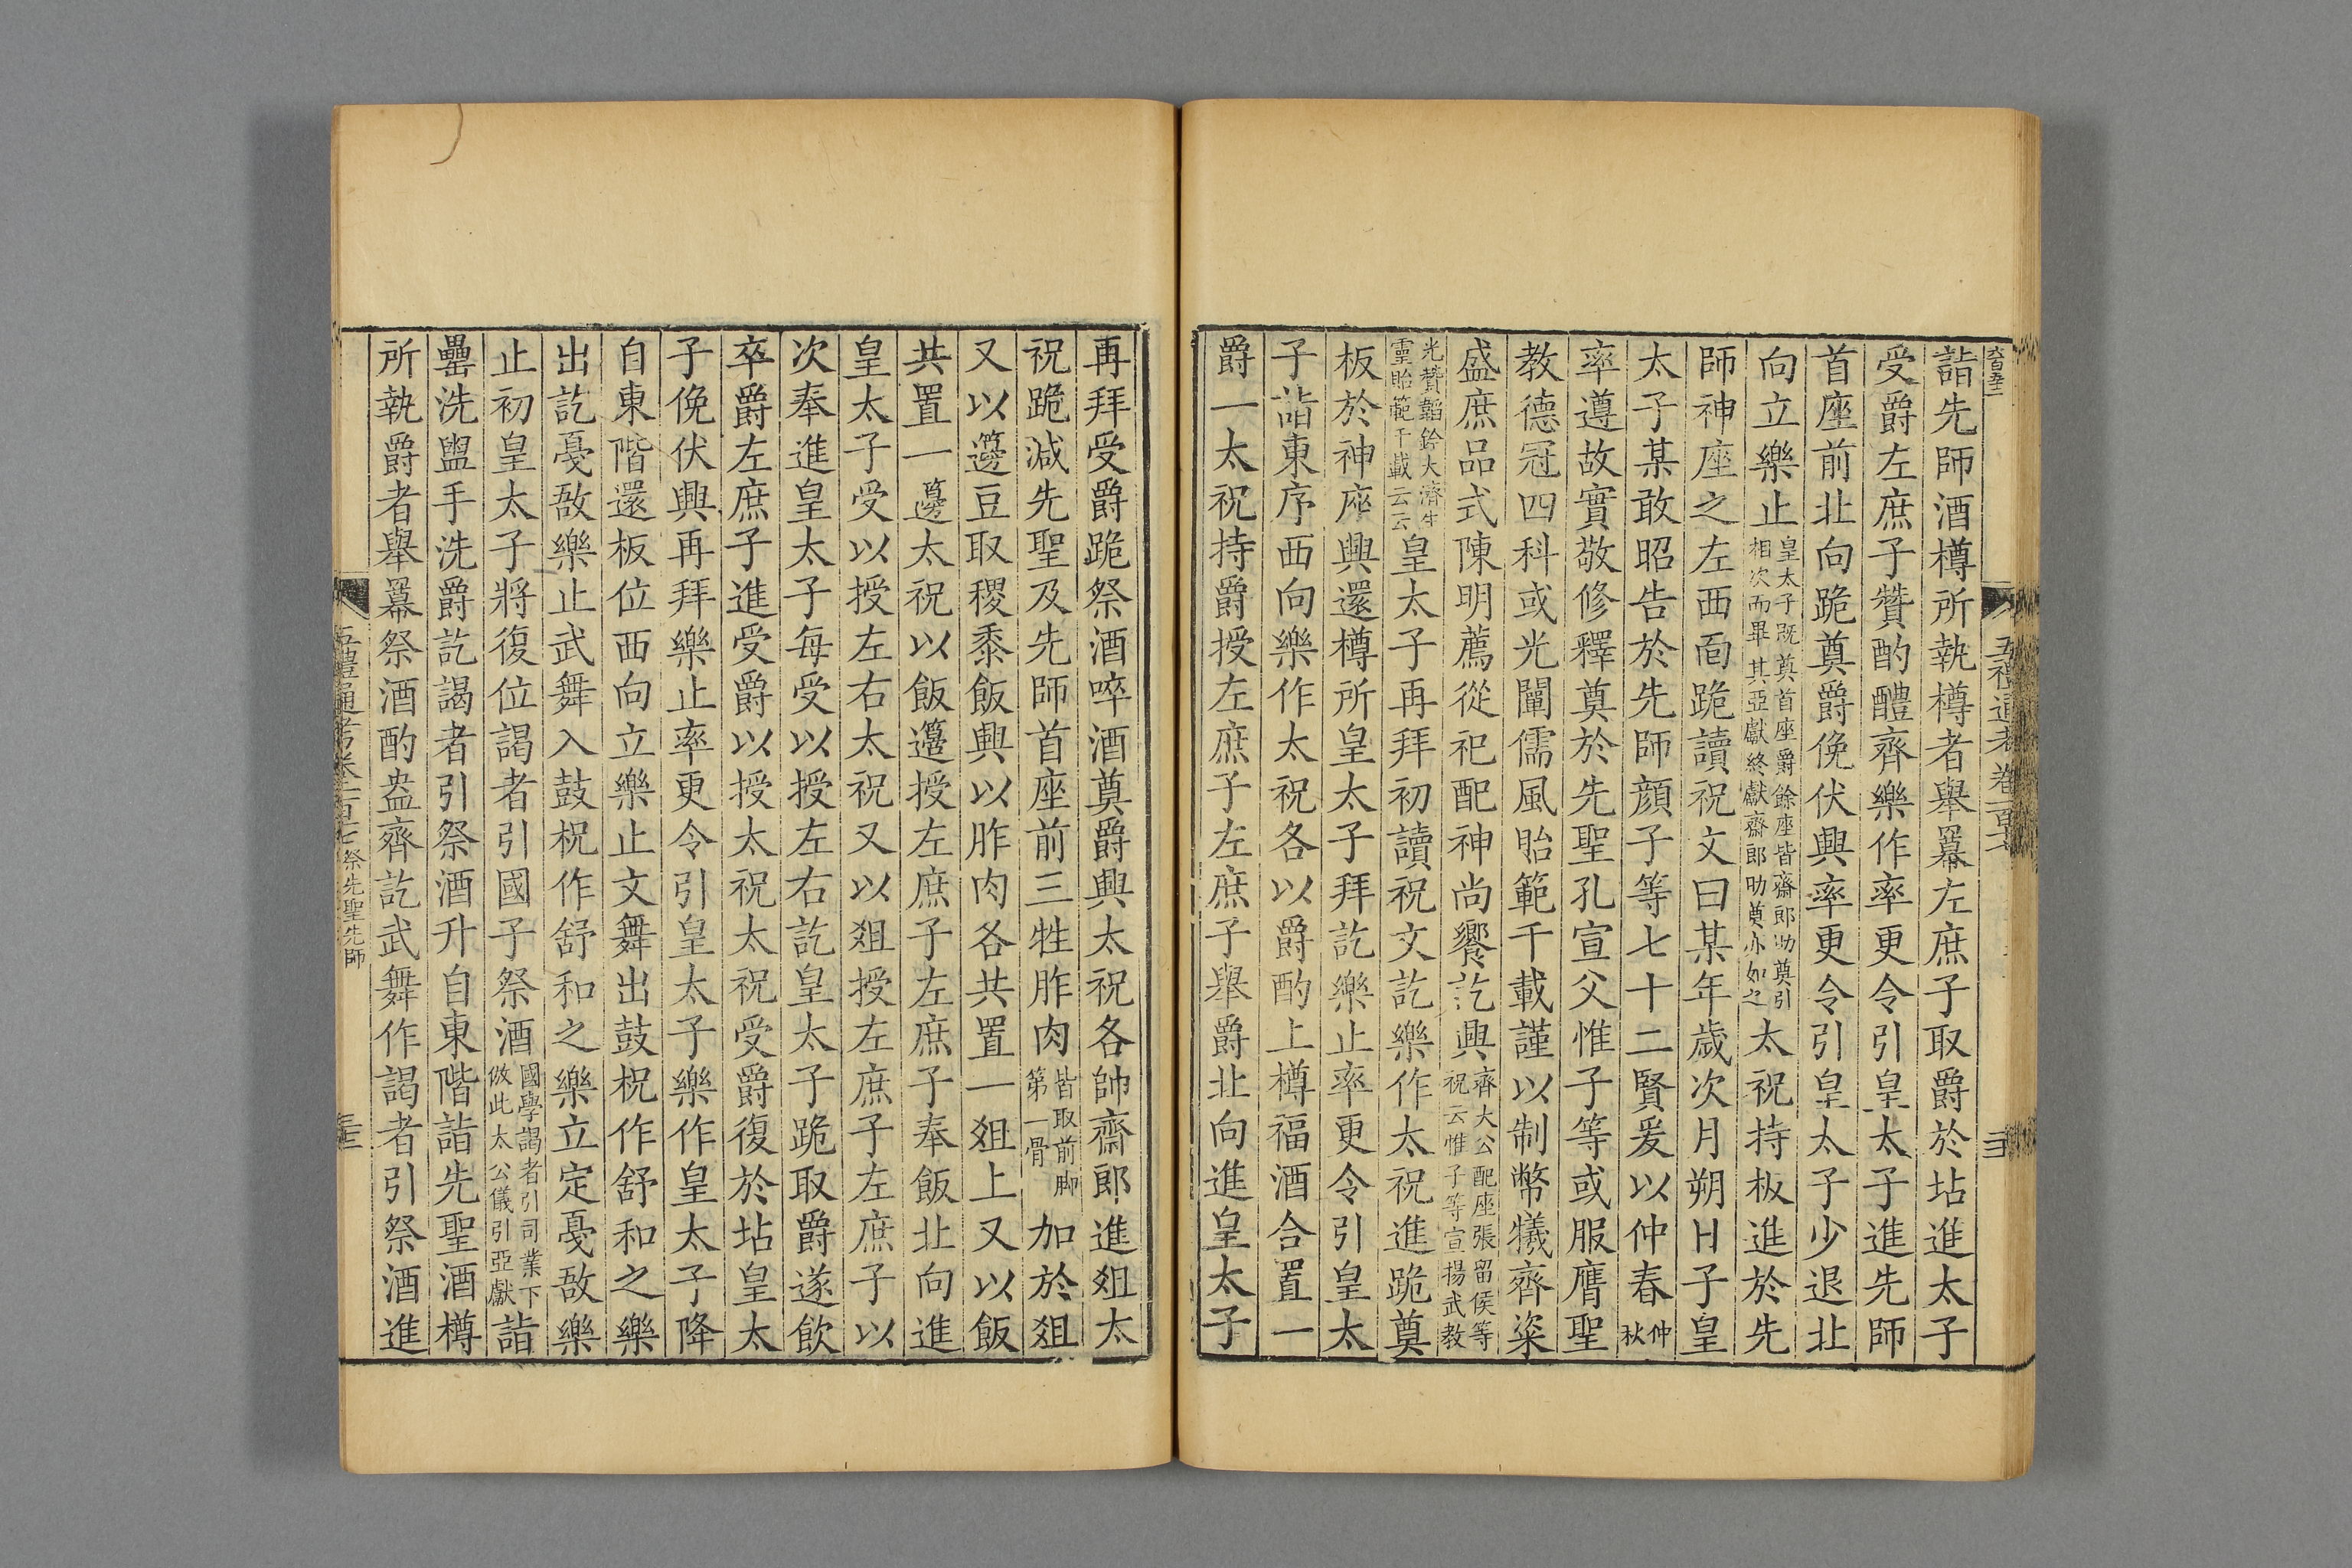 五禮通考卷一百十七
詣先師酒樽所執樽者舉羃左庶子取爵於坫進太子
受爵左庶子贊酌醴齊樂作率更令引皇太子進先師
首座前北向跪奠爵俛伏興率更令引皇太子少退北
向立樂止皇太子既奠首座爵餘座皆齋郎助奠引相次而畢其亞獻終獻齋郎助奠亦如之太祝持板進於先
師神座之左西面跪讀祝文曰某年歲次月朔日子皇
太子某敢昭告於先師顔子等七十二賢爰以仲春仲秋
率遵故實敬修釋奠於先聖孔宣父惟子等或服膺聖
教德冠四科或光闡儒風貽範千載謹以制幣犧齊粢
盛庶品式陳明薦從祀配神尚饗訖興齊大公配座張留侯等祝云惟子等宣揚武教
光贊韜鈐大濟生靈貽範千載云云皇太子再拜初讀祝文訖樂作太祝進跪奠
板於神座興還樽所皇太子拜訖樂止率更令引皇太
子詣東序西向樂作太祝各以爵酌上樽福酒合置一
爵一太祝持爵授左庶子左庶子舉爵北向進皇太子
再拜受爵跪祭酒啐酒奠爵興太祝各帥齋郎進俎太
祝跪減先聖及先師首座前三牲胙肉皆取前脚第一骨加於俎
又以籩豆取稷黍飯興以胙肉各共置一俎上又以飯
共置一籩太祝以飯籩授左庶子左庶子奉飯北向進
皇太子受以授左右太祝又以俎授左庶子左庶子以
次奉進皇太子每受以授左右訖皇太子跪取爵遂飲
卒爵左庶子進受爵以授太祝太祝受爵復於坫皇太
子俛伏興再拜樂止率更令引皇太子樂作皇太子降
自東階還板位西向立樂止文舞出鼓柷作舒和之樂
出訖戞敔樂止武舞入鼓柷作舒和之樂立定戞敔樂
止初皇太子將復位謁者引國子祭酒國學謁者引司業下倣此太公儀引亞獻詣
罍洗盥手洗爵訖謁者引祭酒升自東階詣先聖酒樽
所執爵者舉羃祭酒酌盎齊訖武舞作謁者引祭酒進
五禮通考卷一百十七祭先聖先師